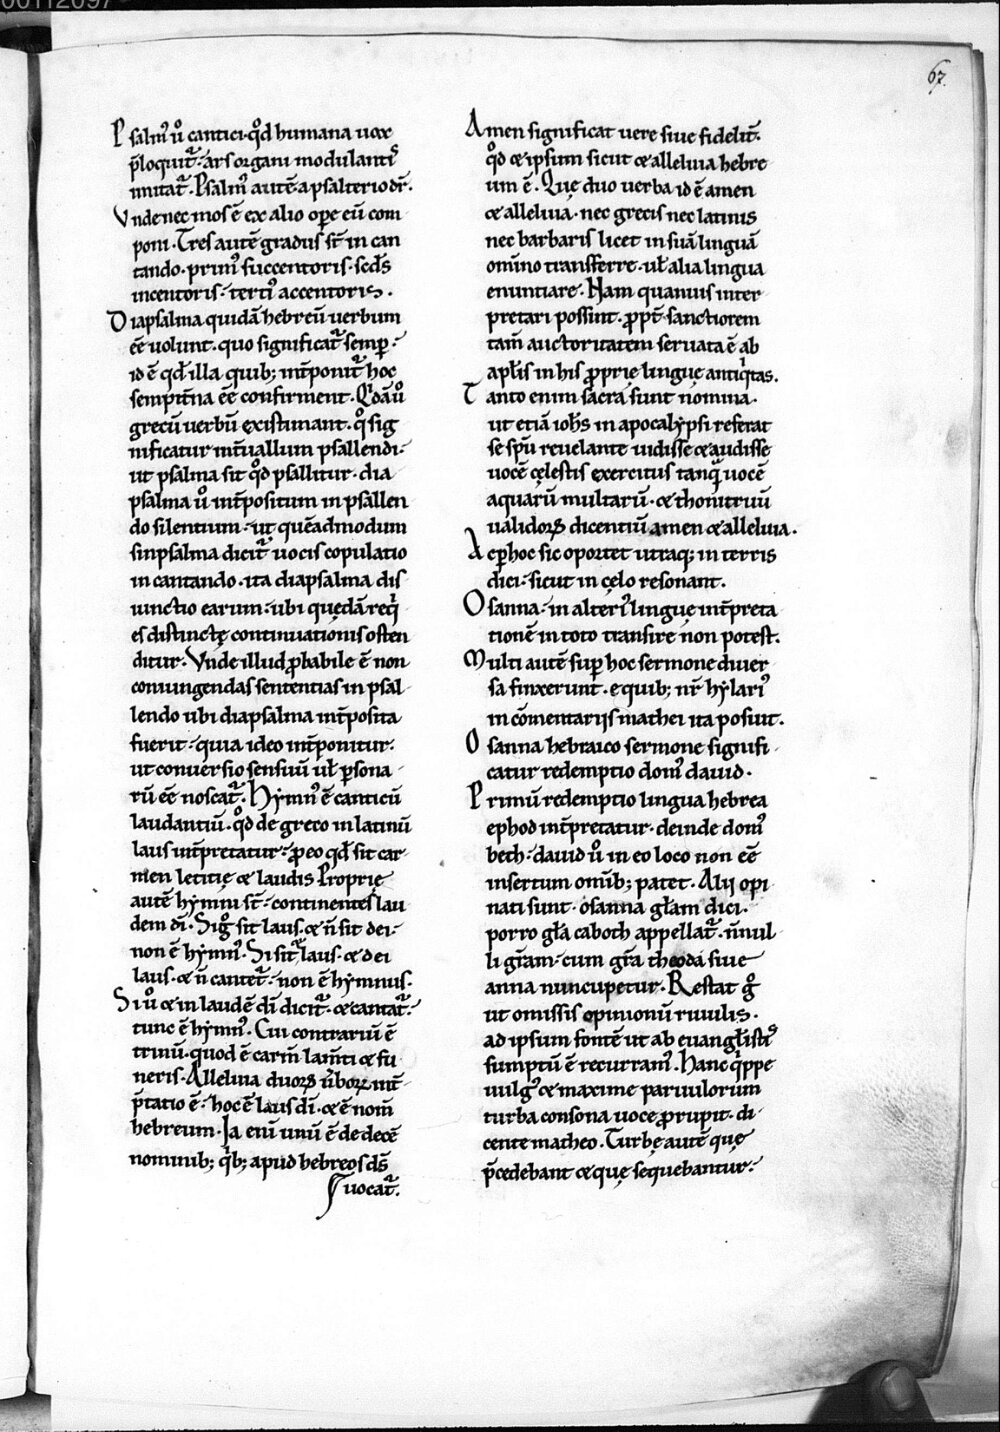 00112097
67.
Psalmꝰ ṽo cantici· qd̄ humana uox
p̄loquit᷑· ars organi modulantiſ
imitat᷑. Psalmꝰ autē a psalterio dr̄.
Vnde nec moſ ē ex alio ope eū com
poni. Treſ autē graduſ st̄ in can
tando. primꝰ succentoris· scds̄
incentoris· tertiꝰ accentoris.
Diapsalma quidā hebreū uerbum
eē uolunt. quo significat᷑ semꝑ·
id ē qd̄ illa quib; int̄ponit᷑ hoc
sempit̄na eē confirment. Qͥdā ůo
grecū uerbū existimant. qͦ sig
nificatur int̄uallum psallendi·
ut psalma sit qd̄ psallitur. dia
psalma ůo int̄positum in psallen
do silentium· ut quēadmodum
sinpsalma dicit᷑ uocis copulatio
in cantando. ita diapsalma dis
iunctio earum· ubi quędā reqͥ
es distinctę continuationis osten
ditur. Vnde illud ꝓbabile ē non
coniungendas sententias in psal
lendo ubi diapsalma int̄posita
fuerit· quia ideo int̄ponitur·
ut conuersio sensuū ul̄ ꝑsona
rū eē noscat᷑. Hymnꝰ ē canticū
laudantiū. qd̄ de greco in latinū
laus int̄pretatur· ꝓ eo qd̄ sit car
men letitię & laudis Proprię
autē hymni st̄· continenteſ lau
dem dī. Sigͦ sit laus. & n̄ sit dei·
non ē hymnꝰ. Si sit᷑ laus. & dei
laus. & n̄ cantet᷑· non ē hymnus.
Si ůo & in laudē dī dicit᷑. & cantat᷑.
tunc ē hymnꝰ. Cui contrariū ē
trinū. quod ē carm̄ lam̄ti & fu
neris. Alleluia duorꝝ ůborꝝ int̄
p̄tatio ē. hoc ē laus dī. & ē nom̄
hebreum. Ia eni unū ē de decē
nominib; qͥb; apud hebreos ds̄
uocat᷑.
Amen significat uere siue fidelit̄.
qd̄ & ipsum sicut & alleluia hebre
um ē. Quę duo uerba id ē amen
& alleluia. nec grecis nec latinis
nec barbaris licet in suā linguā
om̄ino transferre. ul̄ alia lingua
enuntiare. Nam quamuis inter
pretari possint. ꝓpt̄ sanctiorem
tam̄ auctoritatem seruata ē ab
apl̄is in his ꝓprię linguę antiqͥtas.
Tanto enim sacra sunt nomina.
ut etiā ioh̄s in apocalẏpsi referat
se spū reuelante uidisse & audisse
uocē cęlestis exercitus tanqͣ uocē
aquarū multarū. & thonitruū
ualidorꝝ dicentiū amen & alleluia.
Ac ꝑ hoc sic oportet utraq; in terris
dici· sicut in cęlo resonant.
Osanna· in alteriꝰ linguę int̄preta
tionē in toto transire non potest.
Multi autē suꝑ hoc sermone diuer
sa finxerunt. e quib; nr̄ hẏlariꝰ
in cōmentarijs mathei ita posuit.
Osanna hebraico sermone signifi
catur redemptio domꝰ dauid.
Primū redemptio lingua hebrea
ephod int̄pretatur. deinde domꝰ
beth. dauid ůo in eo loco non eē
insertum omīb; patet. Alij opi
nati sunt. osanna gl̄am dici.
porro gl̄a caboth appellat᷑. n̄nul
li gr̄am· cum gr̄a theoda siue
anna nuncupetur. Restat gͦ
ut omissis opinionū riuulis.
ad ipsum fontē ut ab euangl̄istiſ
sumptū ē recurramꝰ. Hanc qͥppe
uulgꝰ & maxime paruulorum
turba consona uoce prorupit. di
cente matheo. Turbę autē quę
p̄cedebant & quę sequebantur·